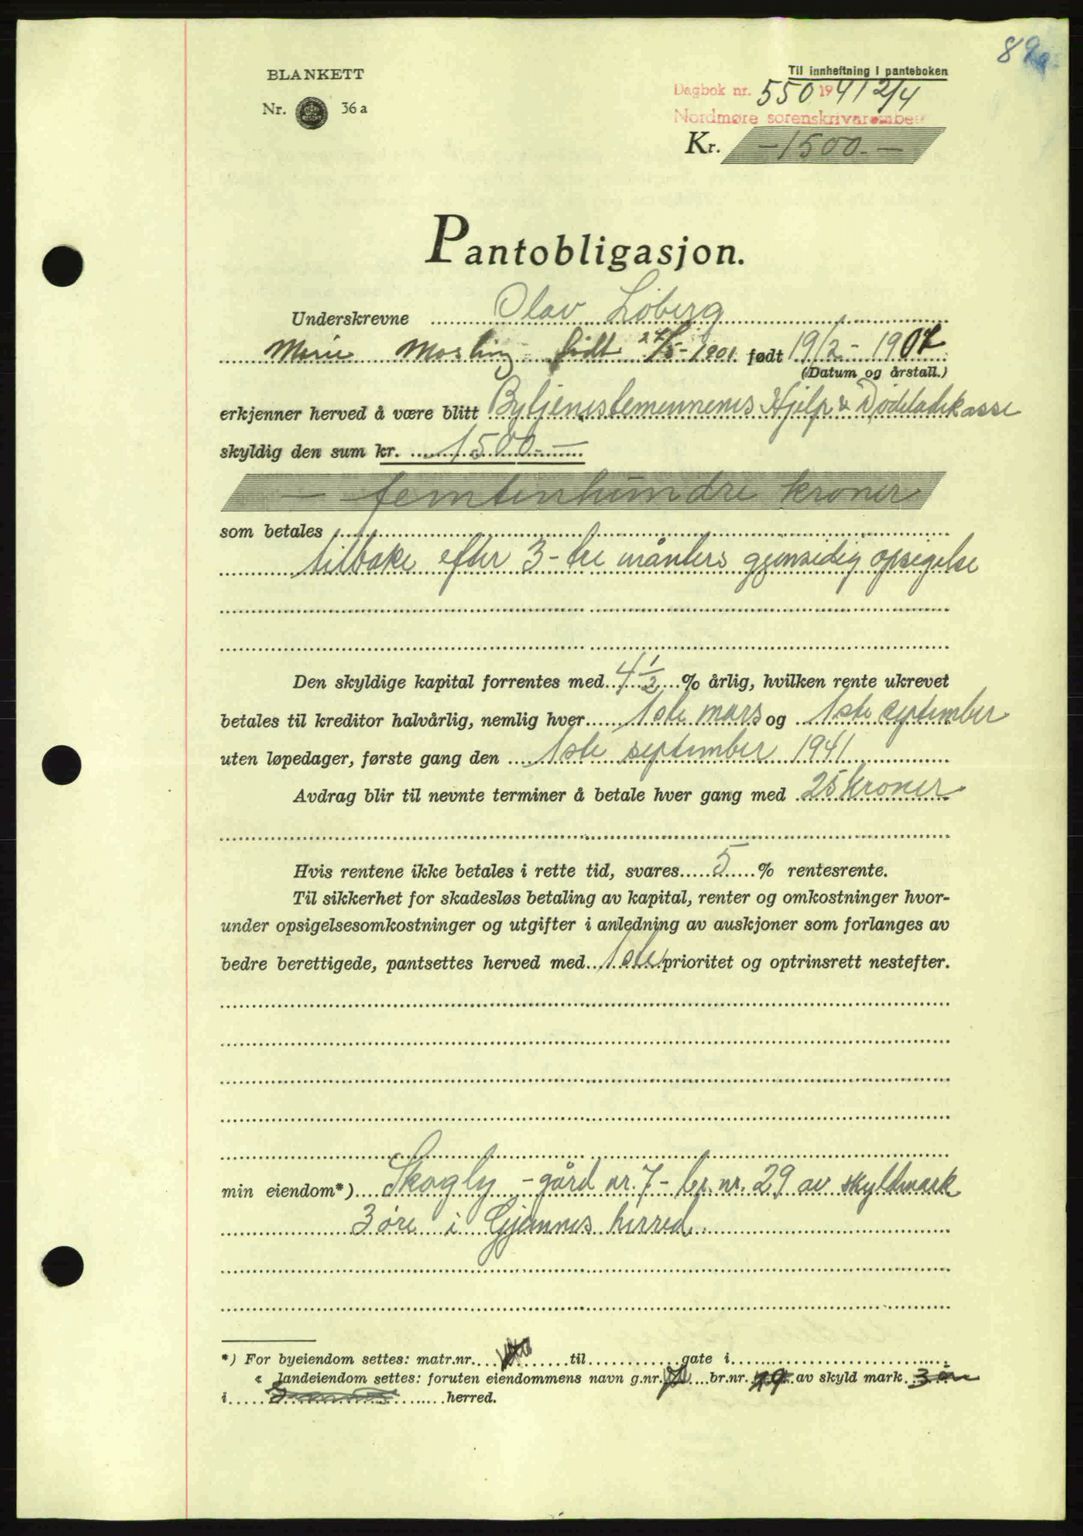 89
BLANKETT
Nr. 36 a
Til innheftning i panteboken
Dagbok nr. 550 1941 2/4
Nordmøre sorenskrivarembe
Kr. - 1500.-
Pantobligasjon.
Underskrevne Olav Løberg
født 27/5-1901 født 19/2 - 1907
(Datum og årstall.)
erkjenner herved å være blitt Bytjenestemennenes Hjelp & Dødeladskasse
skyldig den sum kr. 1500.-
- femtenhundre kroner
som betales
tilbake efter 3-tre månters gjensidig opsigelse
Den skyldige kapital forrentes med 4 1/2 % årlig, hvilken rente ukrevet
betales til kreditor halvårlig, nemlig hver 1ste mars og 1ste september
uten løpedager, første gang den 1ste september 1941
Avdrag blir til nevnte terminer å betale hver gang med 25 kroner
Hvis rentene ikke betales i rette tid, svares 5 % rentesrente.
Til sikkerhet for skadesløs betaling av kapital, renter og omkostninger hvor-
under opsigelsesomkostninger og utgifter i anledning av auskjoner som forlanges av
bedre berettigede, pantsettes herved med 1ste prioritet og optrinsrett nestefter.
min eiendom*) Skogly - gård nr. 7 - br. nr. 29 av skyldmark
3 øre i Gjemnes herred.
*) For byeiendom settes: matr.nr. til gate i
« landeiendom settes: foruten eiendommens navn g.nr. 7 br.nr. 29 av skyld mark 3 øre
i herred.